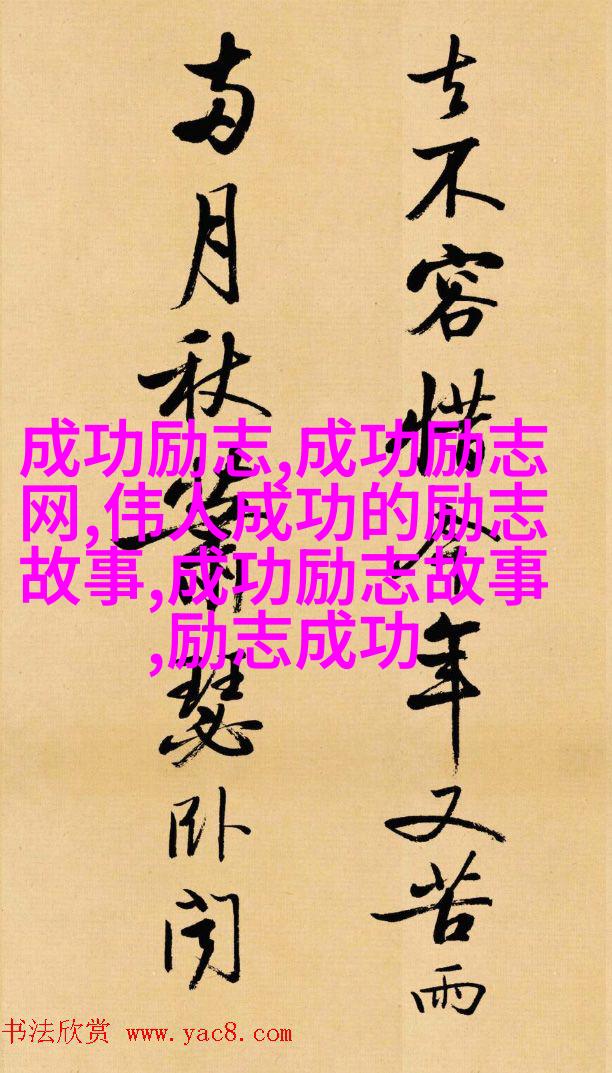 去不容惜今年又苦雨
两月秋蕭瑟卧闻
成功励志,成功励志
网,伟人成功的励志
故事,成功励志故事
,励志成功
书法欣赏 www.yac8.com